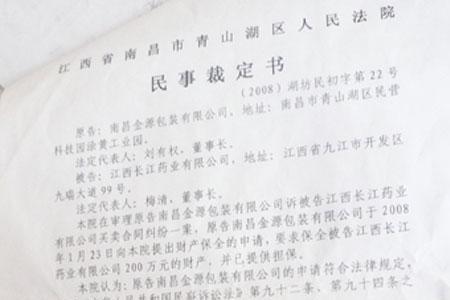 江西省南昌市青山湖区人民法院
民事裁定书
(2008)湖坊民初字第22号
原告:南昌金源包装有限公司,地址:南昌市青山湖区民营
科技园涂黄工业园。
法定代表人:刘有权,董事长。
被告:江西长江药业有限公司,地址:江西省九江市开发区
九瑞大道99号。
法定代表人:梅清,董事长。
本院在审理原告南昌金源包装有限公司诉被告江西长江药业
有限公司买卖合同纠纷一案,原告南昌金源包装有限公司于2008
年1月23日向本院提出财产保全的申请,要求保全被告江西长江
药业有限公司200万元的财产,并已提供担保。
本院认为:原告南昌金源包装有限公司的申请符合法律规定,
民共和国民事诉讼法》第九十二条、第九十四条之